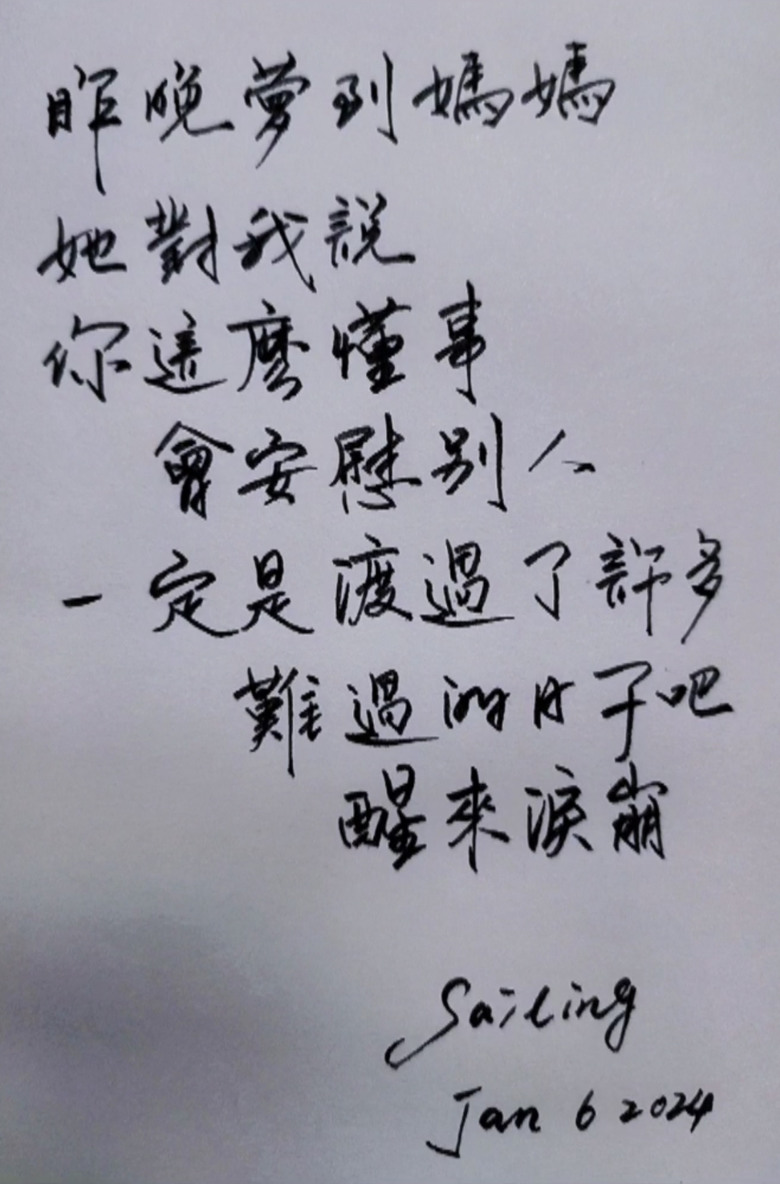 昨晚夢到媽媽
她對我說
你這麼懂事
會安慰別人
一定是渡過了許多
難過的日子吧
醒來淚崩
Sailing
Jan 6 2024